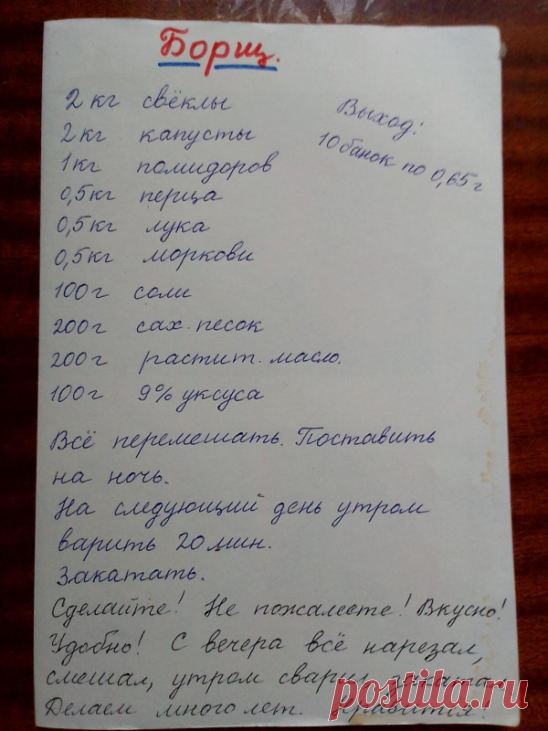 Борщ.
2 кг свёклы
2 кг капусты
1 кг помидоров
0,5 кг перца
0,5 кг лука
0,5 кг моркови
100 г соли
200 г сах. песок
200 г растит. масло.
100 г 9% уксуса
Выход:
10 банок по 0,65 г
Всё перемешать. Поставить
на ночь.
На следующий день утром
варить 20 мин.
Закатать.
Сделайте! Не пожалеете! Вкусно!
Удобно! С вечера всё нарезал,
смешал, утром сварил,
Делаем много лет.
postila.ru